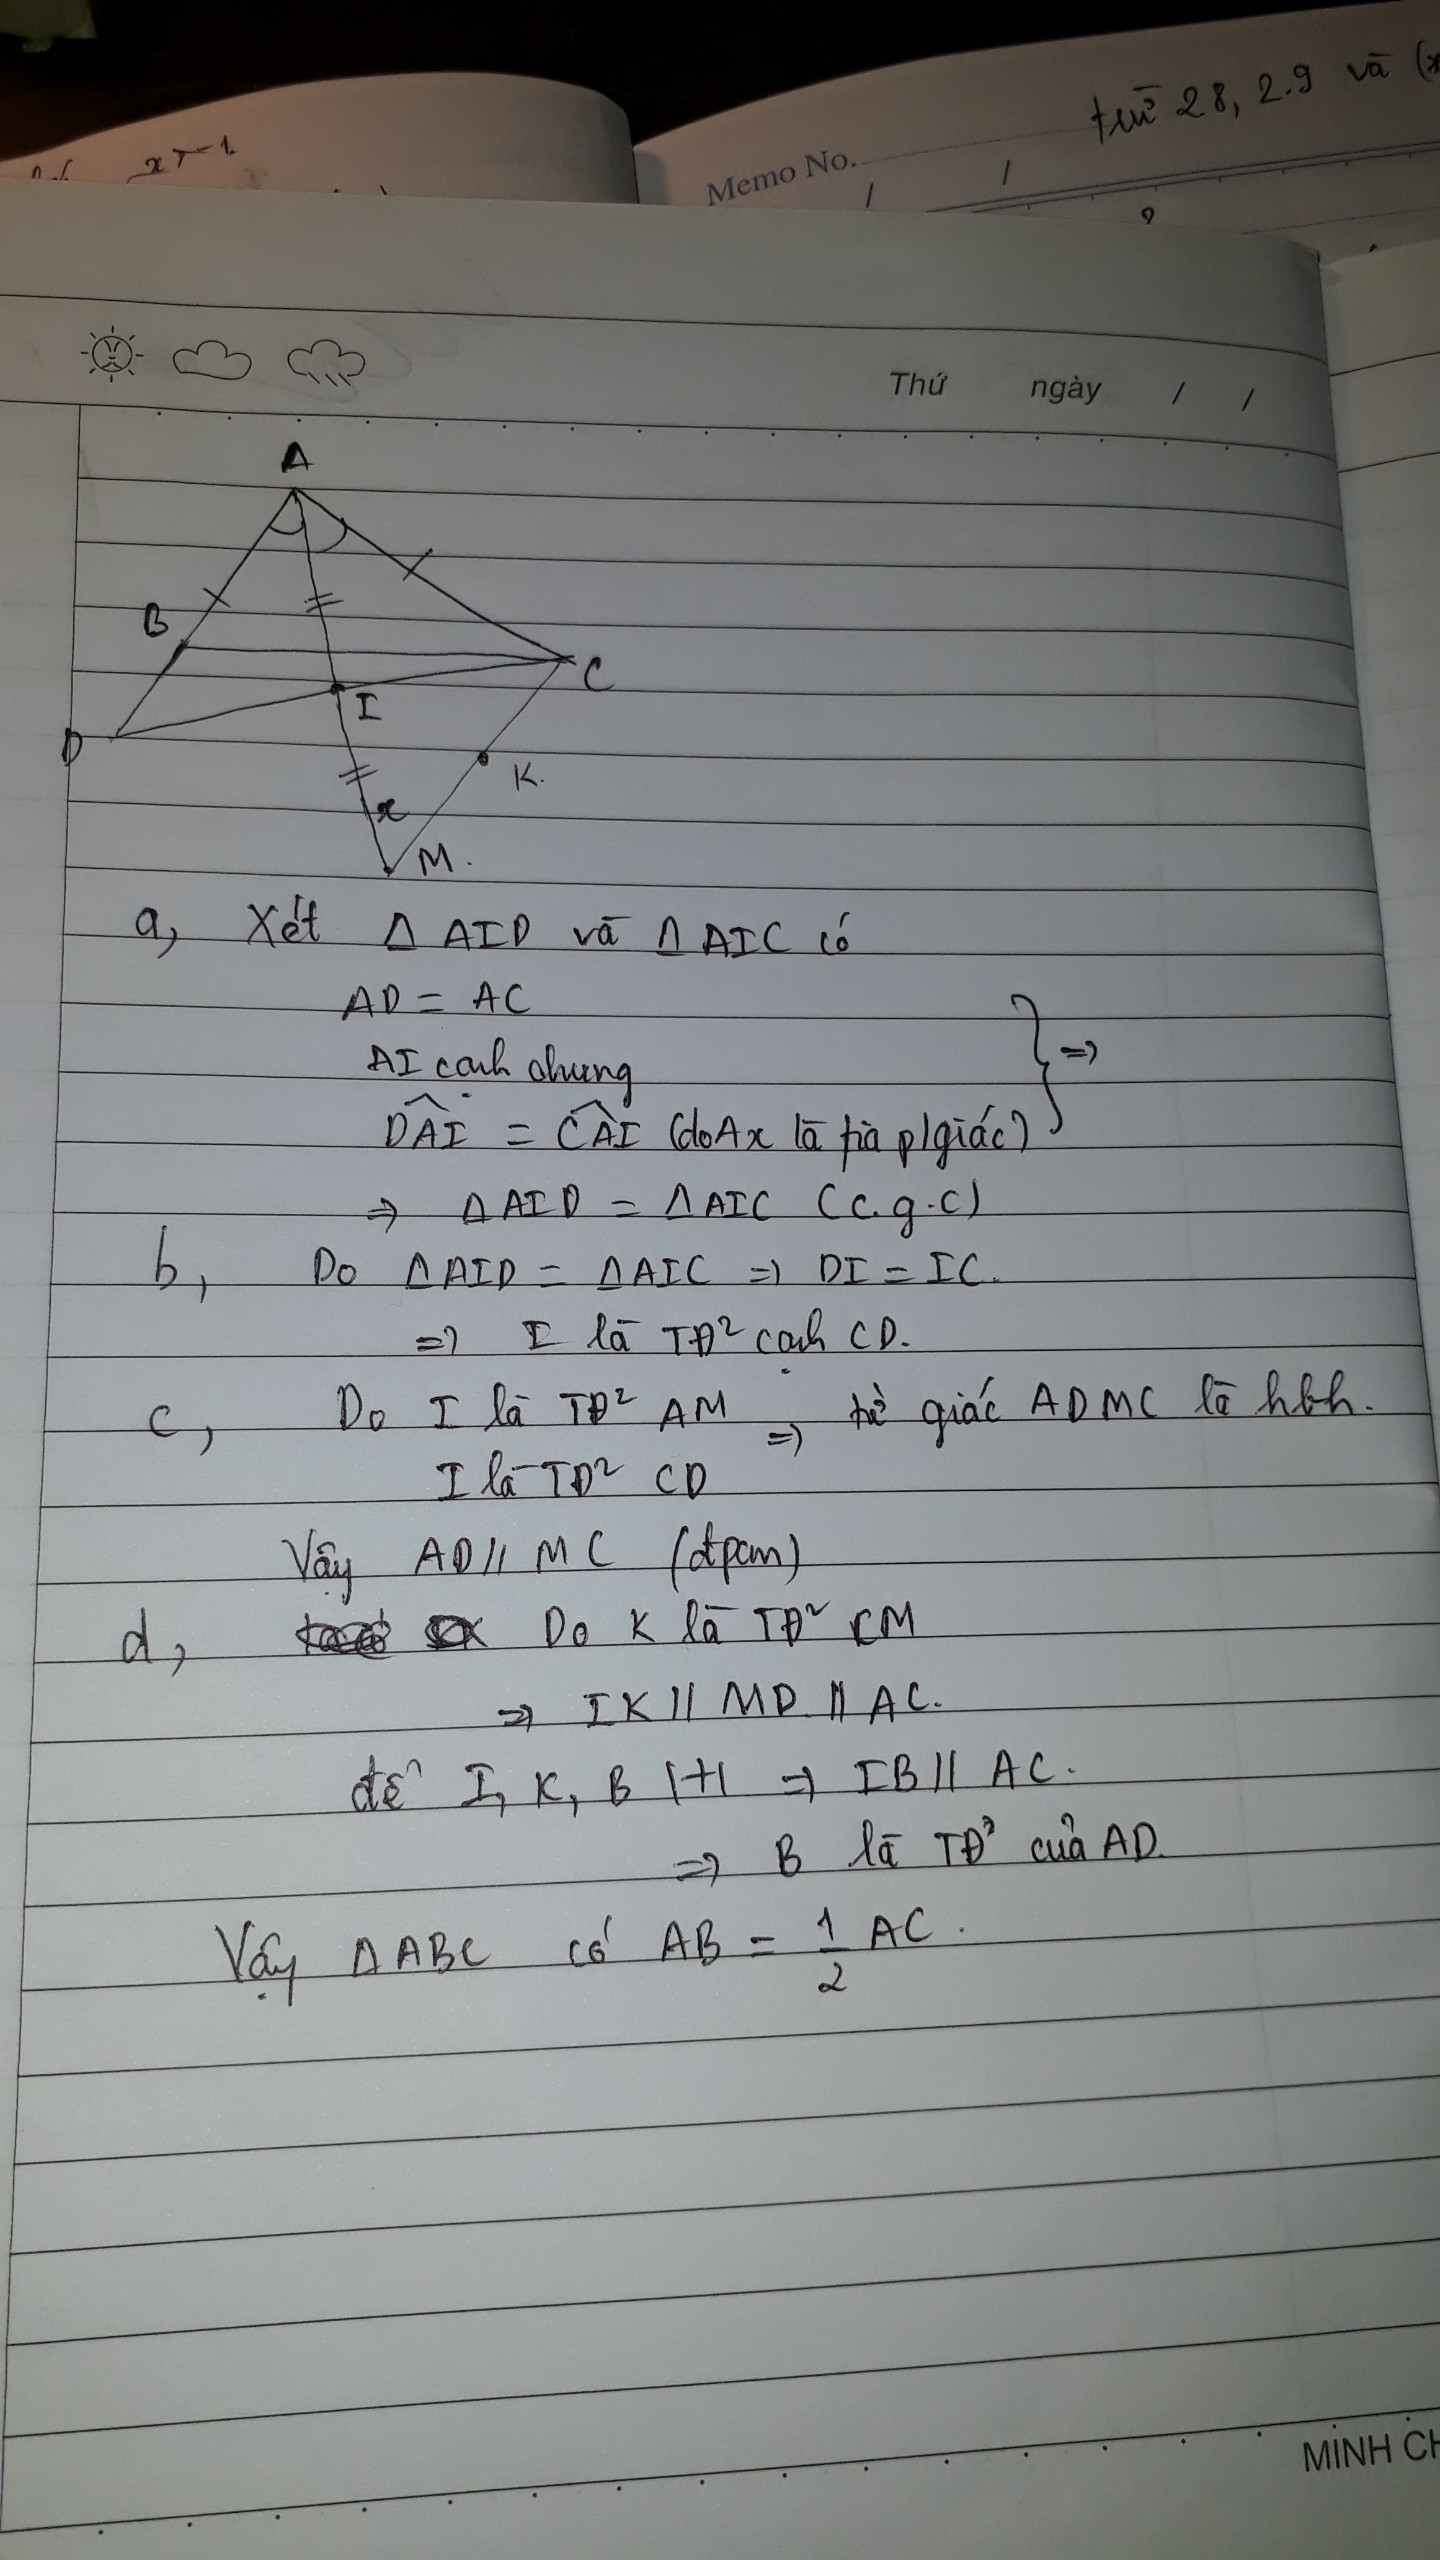 từ 28, 2.9 và (x
Memo No.
Thứ ngày / /
A
B
C
I
D
K.
x
M.
a, Xét Δ AID và Δ AIC có
AD = AC
AI cạnh chung
DAI = CAI (do Ax là tia p/giác) } =>
=> Δ AID = Δ AIC (c.g.c)
b, Do Δ AID = Δ AIC => DI = IC.
=> I là TĐ² cạnh CD.
c, Do I là TĐ² AM => tứ giác ADMC là hbh.
I là TĐ² CD
Vậy AD // MC (đpcm)
d, Do K là TĐ² CM
=> IK // MD // AC.
để I, K, B t+h => IB // AC.
=> B là TĐ² của AD.
Vậy Δ ABC có AB = 1/2 AC.
MINH CH